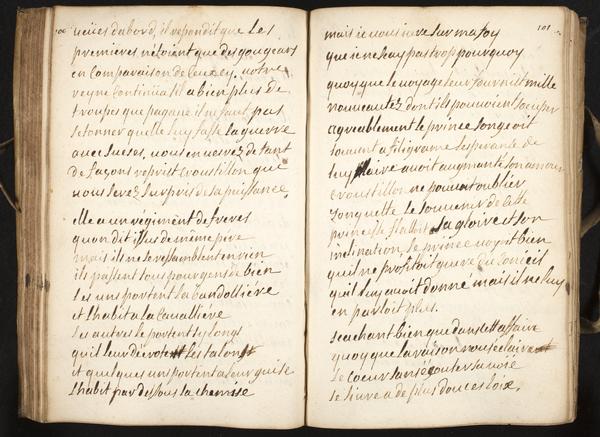 100
veües dabord, il repondit que les
premieres nétoient que des goujears
en comparaison de ceux cy. votre
reyne continüa til a bien plus de
troupes que pagane il ne faut pas
setonner quelle luy fasse la guerre
avec succes, vous en verrez de tant
de façons reprist croustillon que
vous serez surpris de sa puissance.
elle a un régiment de freres
quon dit issus de même pere
mais ils ne se ressemblent en rien
ils passent tous pour gens de bien
Les uns portent la bandolliére
et Lhabit a la cavalliere
Les autres le portent sy long
quil leur
et quelques uns portent a leur guise
Lhabit par dessous la chemise
101
mais je vous jure sur ma foy
que je ne scay pas trop pourquoy
quoy que le voyage leur fournist mille
nouveautez dont ils pouvoient soccuper
agreablement le prince songeoit
souvent a filigrame lesperance de
luy plaire avoit augmenté son amour
croustillon ne pouvoit oublier
Jonquette le souvenir de cette
princesse flattoit sa gloire et son
inclination, le prince voyoit bien
quil ne profitoit guere du conseil
quil luy avoit donné mais il ne luy
en parloit plus.
scachant bien que dans cett affaire
quoy que la raison nous éclaire
Le coeur sans écouter sa voix
se livre a de plus douces loix.